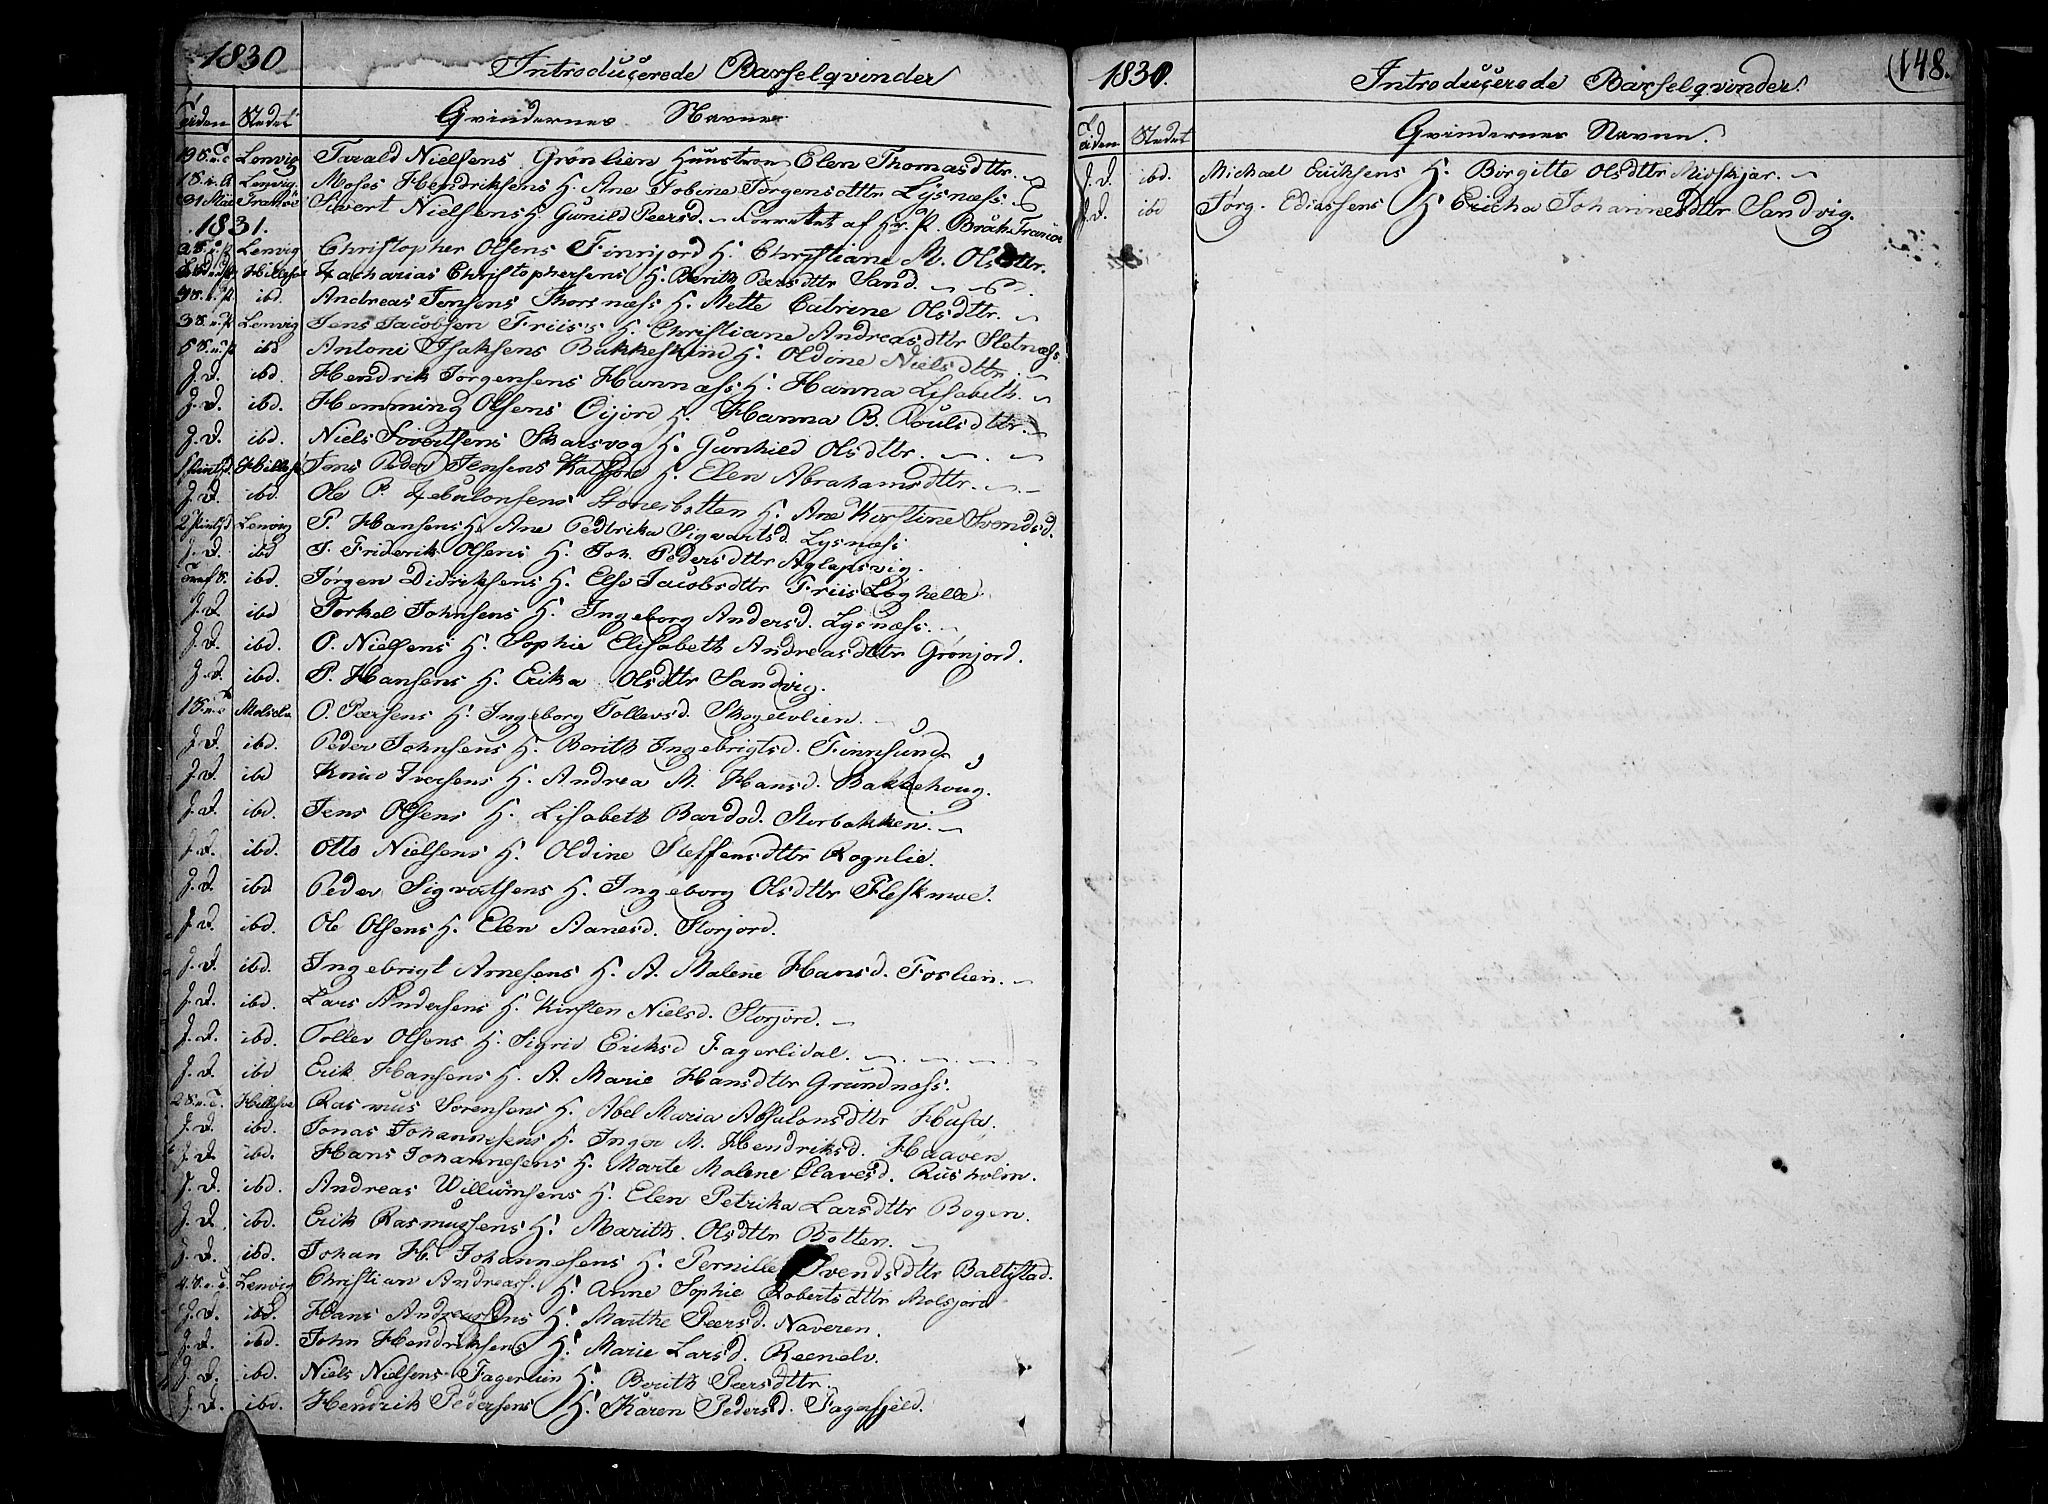 1830
Introducerede Barselqvinder
Tiden Stedet Qvindernes Navne
19 S. n. T. Lenvig Tarald Nielsens Grönlien Huustroe Elen Thomasdttr.
1 S. i. A. Lenvig. Moses Hendriksens H. Ane Tobine Jørgensdttr Lysnæss.
Tranöe Sivert Nielsens H. Gunild Peersd. - Forrettet af Hr. P. Tranöe
1831.
Lenvig Christopher Olsens Finnjord H. Christiane M. Olsdttr.
Hillesøe Zacharias Christophersens H. Berith Peersdttr Sand.
ibd. Andreas Jensens Thorsnæss H. Mette Catrine Olsdttr.
3 S. n. P. Lenvig Jens Jacobsen Friis's H. Christiane Andreasdttr Sletnæss.
5 S. n. P. ibd Antoni Isaksens Bakkeskind H. Oldine Nielsdttr.
J. D. ibd. Hendrik Jørgensens Hannæss H. Hanna Lisabeth.
J. D. ibd. Hemming Olsens Eijord H. Hanna B. Poulsdttr.
J. D. ibd. Niels Sivertsens Skarsvog H. Gunhild Olsdttr.
Hillesø Jens Peder Jensens Kalfjord H. Elen Abrahamsdttr.
J. D. ibd. Ole P. Zebulonsens Stonesbotten H. Ane Kirstine Svendsd.
Lenvig P. Hansens H. Ane Pedrika Sigvartsd. Lysnæss
J. D. ibd J. Friderik Olsens H. Joh. Pedersdttr Aglapsvig.
ibd. Jørgen Didriksens H. Else Jacobsdttr Friis Løghelle.
J. D. ibd Torkel Johnsens H. Ingeborg Andersd. Lysnæss.
J. D. ibd. O. Nielsens H. Sophie Elisabeth Andreasdttr Grönjord.
J. D. ibd. P. Hansens H. Erika Olsdttr Sandvig.
1 S. n. T. Molselv O. Peersens H. Ingeborg Tollevsd. Skogelvlien.
J. D. ibd. Peder Johnsens H. Berith Ingebrigtsd. Finnsund
J. D. ibd Knud Iversens H. Andrea M. Hansd. Bakkehoug.
J. D. ibd. Jens Olsens H. Lisabeth Bardod. Storbakken.
J. D. ibd. Otto Nielsens H. Oldine Steffensdttr Rognlie.
J. D. ibd Peder Sigvatsens H. Ingeborg Olsdttr Fleskmoe.
J. D. ibd. Ole Olsens H. Elen Aanesd. Storjord.
J. D. ibd. Ingebrigt Arnesens H. A. Malene Hansd. Foslien.
J. D. ibd. Lars Andersens H. Kirsten Nielsd. Storjord.
J. D. ibd. Tollev Olsens H. Sigrid Eriksd Fagerlidal.
J. D. ibd Erik Hansens H. A. Marie Hansdttr Grundnæss.
2 S. n. T. Hillesøe Rasmus Sørensens H. Abel Maria Absalonsdttr Husøe.
J. D. ibd. Jonas Johannesens H. Inger M. Hendriksd. Haaven
J. D. ibd. Hans Johannesens H. Marte Malene Olavesd. Rusholm.
J. D. ibd. Andreas Willumsens H. Elen Petrika Larsdttr Bogen.
J. D. ibd. Erik Rasmussens H. Marith Olsdttr Botten.
J. D. ibd. Johan H. Johannesens H. Pernille Svendsdttr Baltzstad.
4 S. n. T. Lenvig Christian Andreass. H. Anne Sophie Robertsdttr Molsjord
J. D. ibd. Hans Andreasens H. Marthe Peersd. Naveren.
J. D. ibd. John Hendriksens H. Marie Larsd. Reenelv.
J. D. ibd. Niels Nielsens Fagerlien H. Berith Peersdttr.
J. D. ibd. Hendrik Pedersens H. Karen Pedersd. Fagerfjeld.
1830. Introducerede Barselqvinder. (148.
Tiden Stedet Qvindernes Navne.
J. D. ibd. Michael Eriksens H. Birgitte Olsdttr Midskjær.
J. D. ibd Jørg. Ediassens H Ericha Johannesdttr Sandvig.